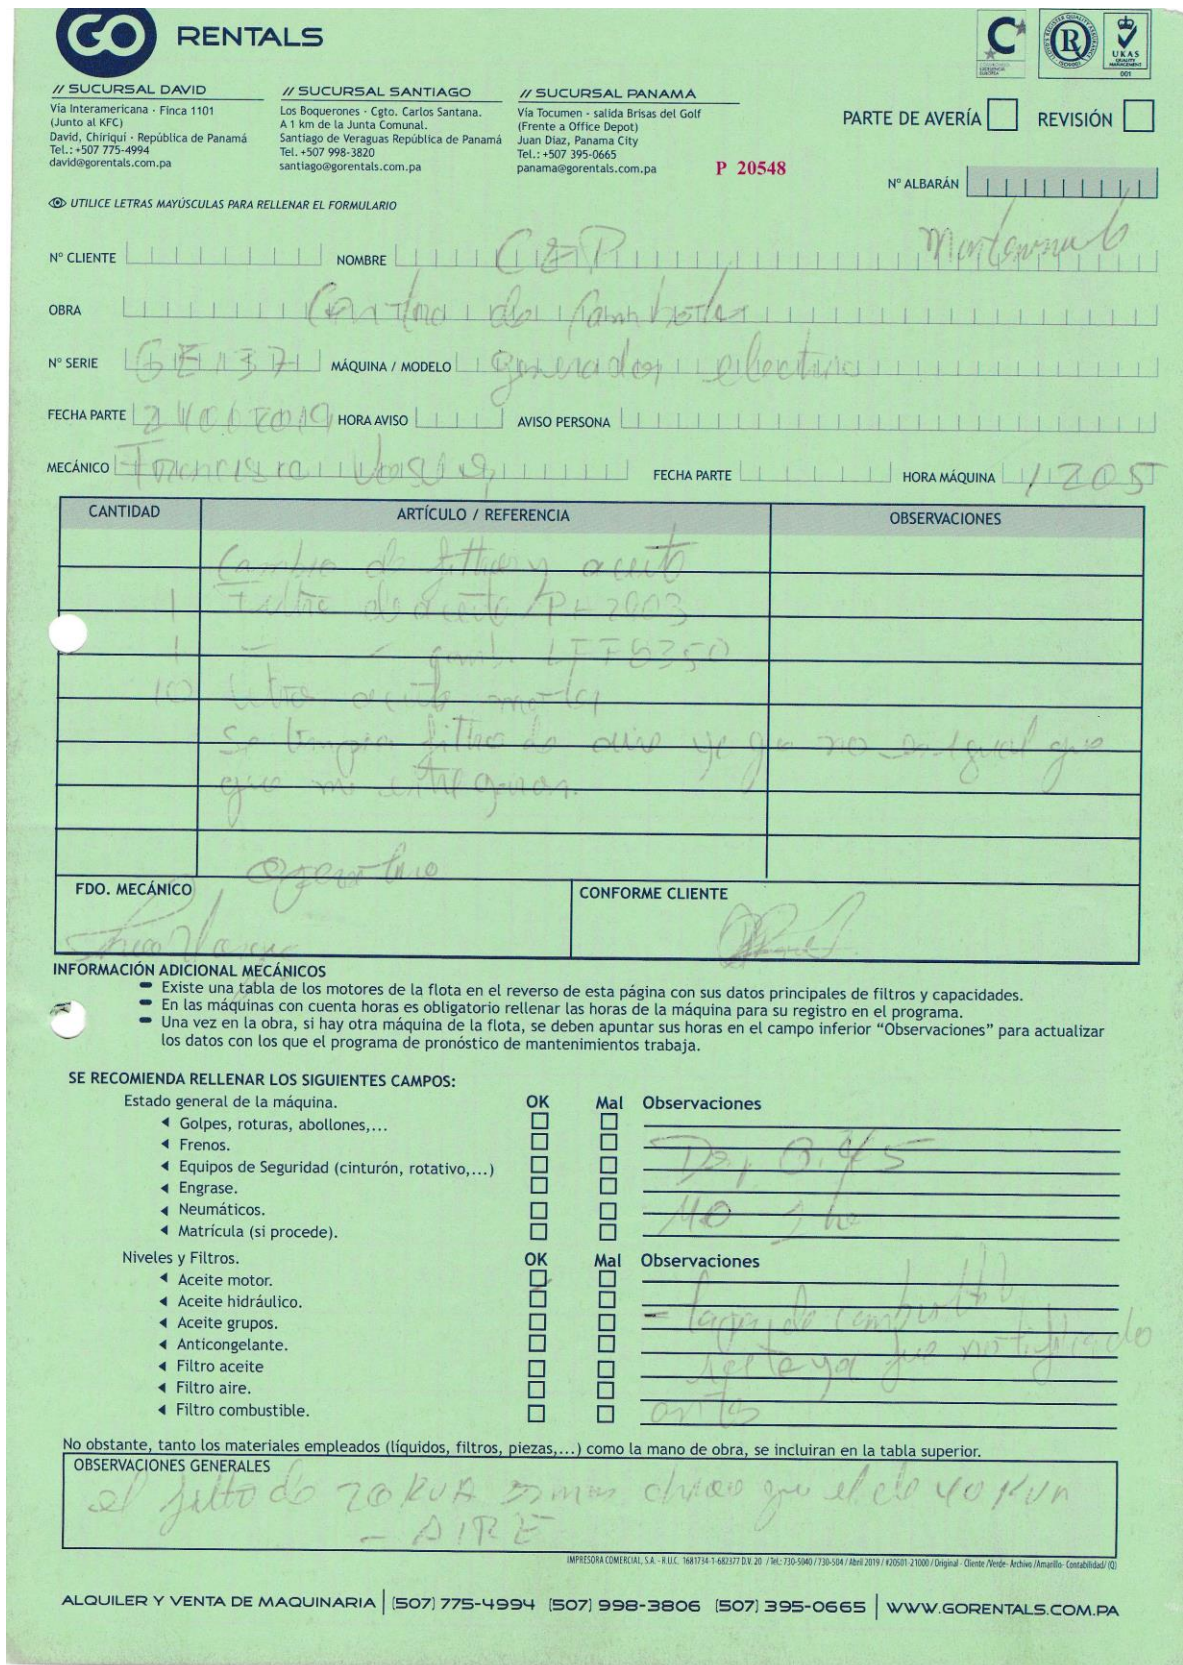 GO RENTALS
// SUCURSAL DAVID
Vía Interamericana - Finca 1101
(Junto al KFC)
David, Chiriquí - República de Panamá
Tel.: +507 775-4994
david@gorentals.com.pa
// SUCURSAL SANTIAGO
Los Boquerones - Cgto. Carlos Santana.
A 1 km de la Junta Comunal.
Santiago de Veraguas República de Panamá
Tel. +507 998-3820
santiago@gorentals.com.pa
// SUCURSAL PANAMA
Vía Tocumen - salida Brisas del Golf
(Frente a Office Depot)
Juan Diaz, Panama City
Tel.: +507 395-0665
panama@gorentals.com.pa
P 20548
UKAS
QUALITY
MANAGEMENT
001
PARTE DE AVERÍA REVISIÓN
Nº ALBARÁN
UTILICE LETRAS MAYÚSCULAS PARA RELLENAR EL FORMULARIO
Nº CLIENTE NOMBRE
OBRA
Nº SERIE GE137 MÁQUINA / MODELO generador electrico
FECHA PARTE HORA AVISO AVISO PERSONA
MECÁNICO FECHA PARTE HORA MÁQUINA 1205
CANTIDAD ARTÍCULO / REFERENCIA OBSERVACIONES
Cambio de filtro y aceite
1 Filtro de aceite 2003
1 - - comb. LFF6350
10 litros aceite motor
Se limpia filtro de aire ya q no es igual que
que me entregaron.
operativo
FDO. MECÁNICO CONFORME CLIENTE
INFORMACIÓN ADICIONAL MECÁNICOS
Existe una tabla de los motores de la flota en el reverso de esta página con sus datos principales de filtros y capacidades.
En las máquinas con cuenta horas es obligatorio rellenar las horas de la máquina para su registro en el programa.
Una vez en la obra, si hay otra máquina de la flota, se deben apuntar sus horas en el campo inferior "Observaciones" para actualizar
los datos con los que el programa de pronóstico de mantenimientos trabaja.
SE RECOMIENDA RELLENAR LOS SIGUIENTES CAMPOS:
Estado general de la máquina. OK Mal Observaciones
Golpes, roturas, abollones,...
Frenos.
Equipos de Seguridad (cinturón, rotativo,...)
Engrase.
Neumáticos.
Matrícula (si procede).
Niveles y Filtros. OK Mal Observaciones
Aceite motor.
Aceite hidráulico.
Aceite grupos.
Anticongelante.
Filtro aceite
Filtro aire.
Filtro combustible.
No obstante, tanto los materiales empleados (líquidos, filtros, piezas,...) como la mano de obra, se incluiran en la tabla superior.
OBSERVACIONES GENERALES
el filtro de 20 KVA es mas chico que el de 40 KVA
- AIRE
IMPRESORA COMERCIAL, S.A. - R.U.C. 1681734-1-682377 D.V. 20 / Tel.: 730-5040 / 730-504 / Abril 2019 / #20501-21000 / Original - Cliente /Verde- Archivo /Amarillo- Contabilidad/ (Q)
ALQUILER Y VENTA DE MAQUINARIA | (507) 775-4994 (507) 998-3806 (507) 395-0665 | WWW.GORENTALS.COM.PA